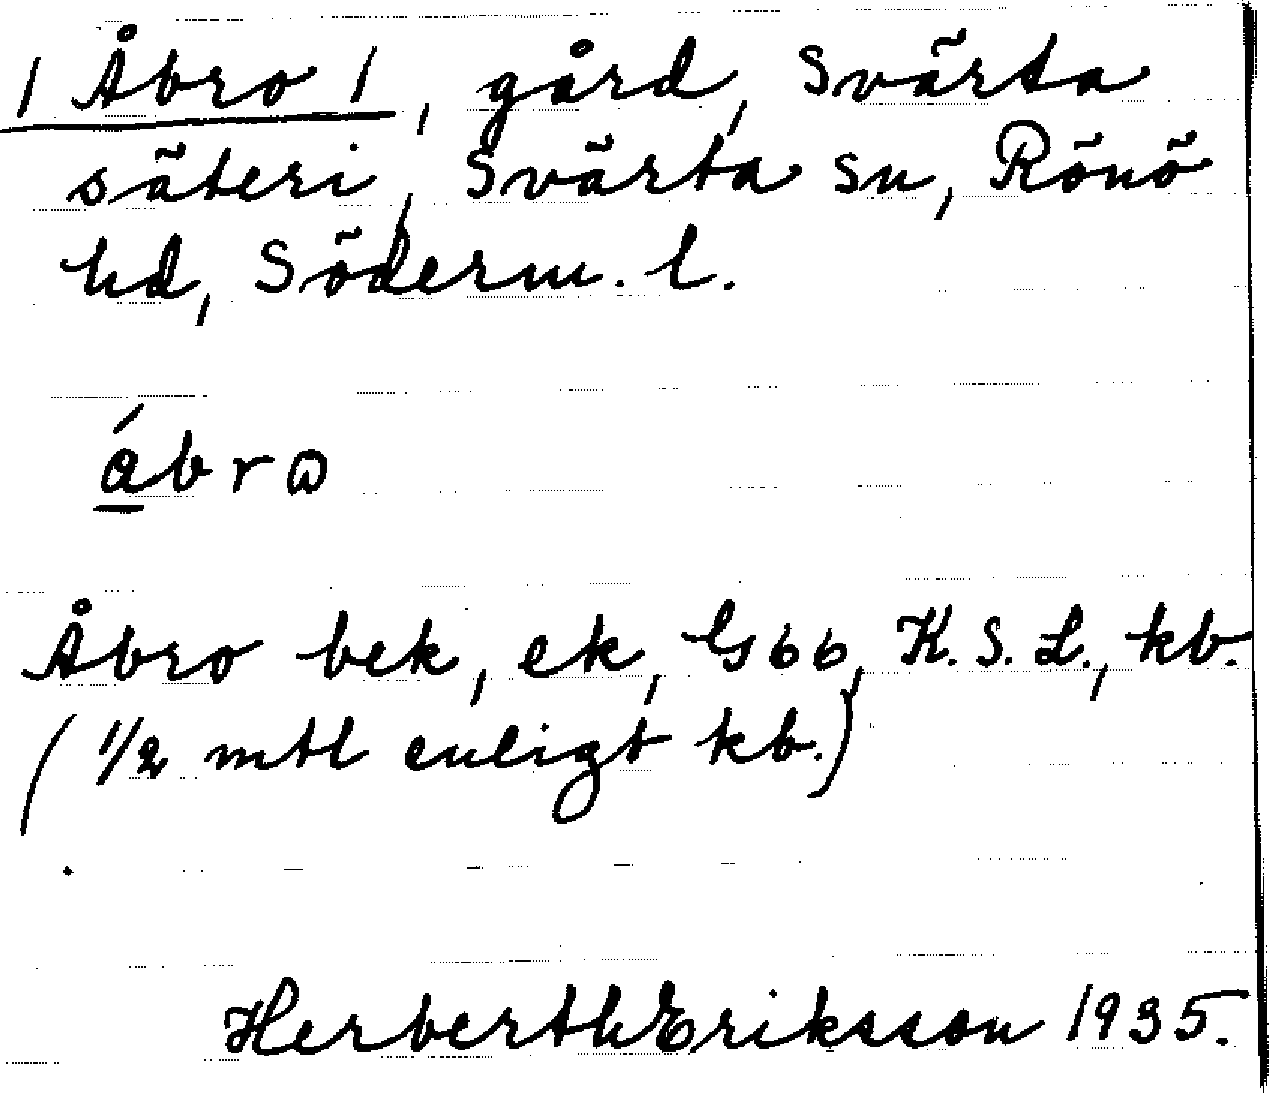 / Åbro /, gård, Svärta
säteri, Svärta sn, Rönö
hd, Söderm. l.
åbro
Åbro bek, ek, G 66, K. S. L., kb.
(1/2 mtl enligt kb.)
Herberth Eriksson 1935.